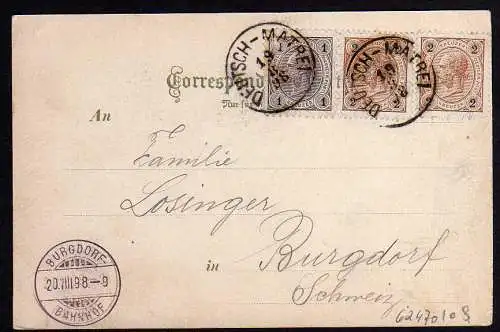 DEUTSCH-MATREI
19
8
98
1 1 1
2 2
DEUTSCH-MATREI
19
8
98
2 2
Correspond
An
Familie
Losinger
in Burgdorf
Schweiz
BURGDORF
20.VIII.98-9
BAHNHOF